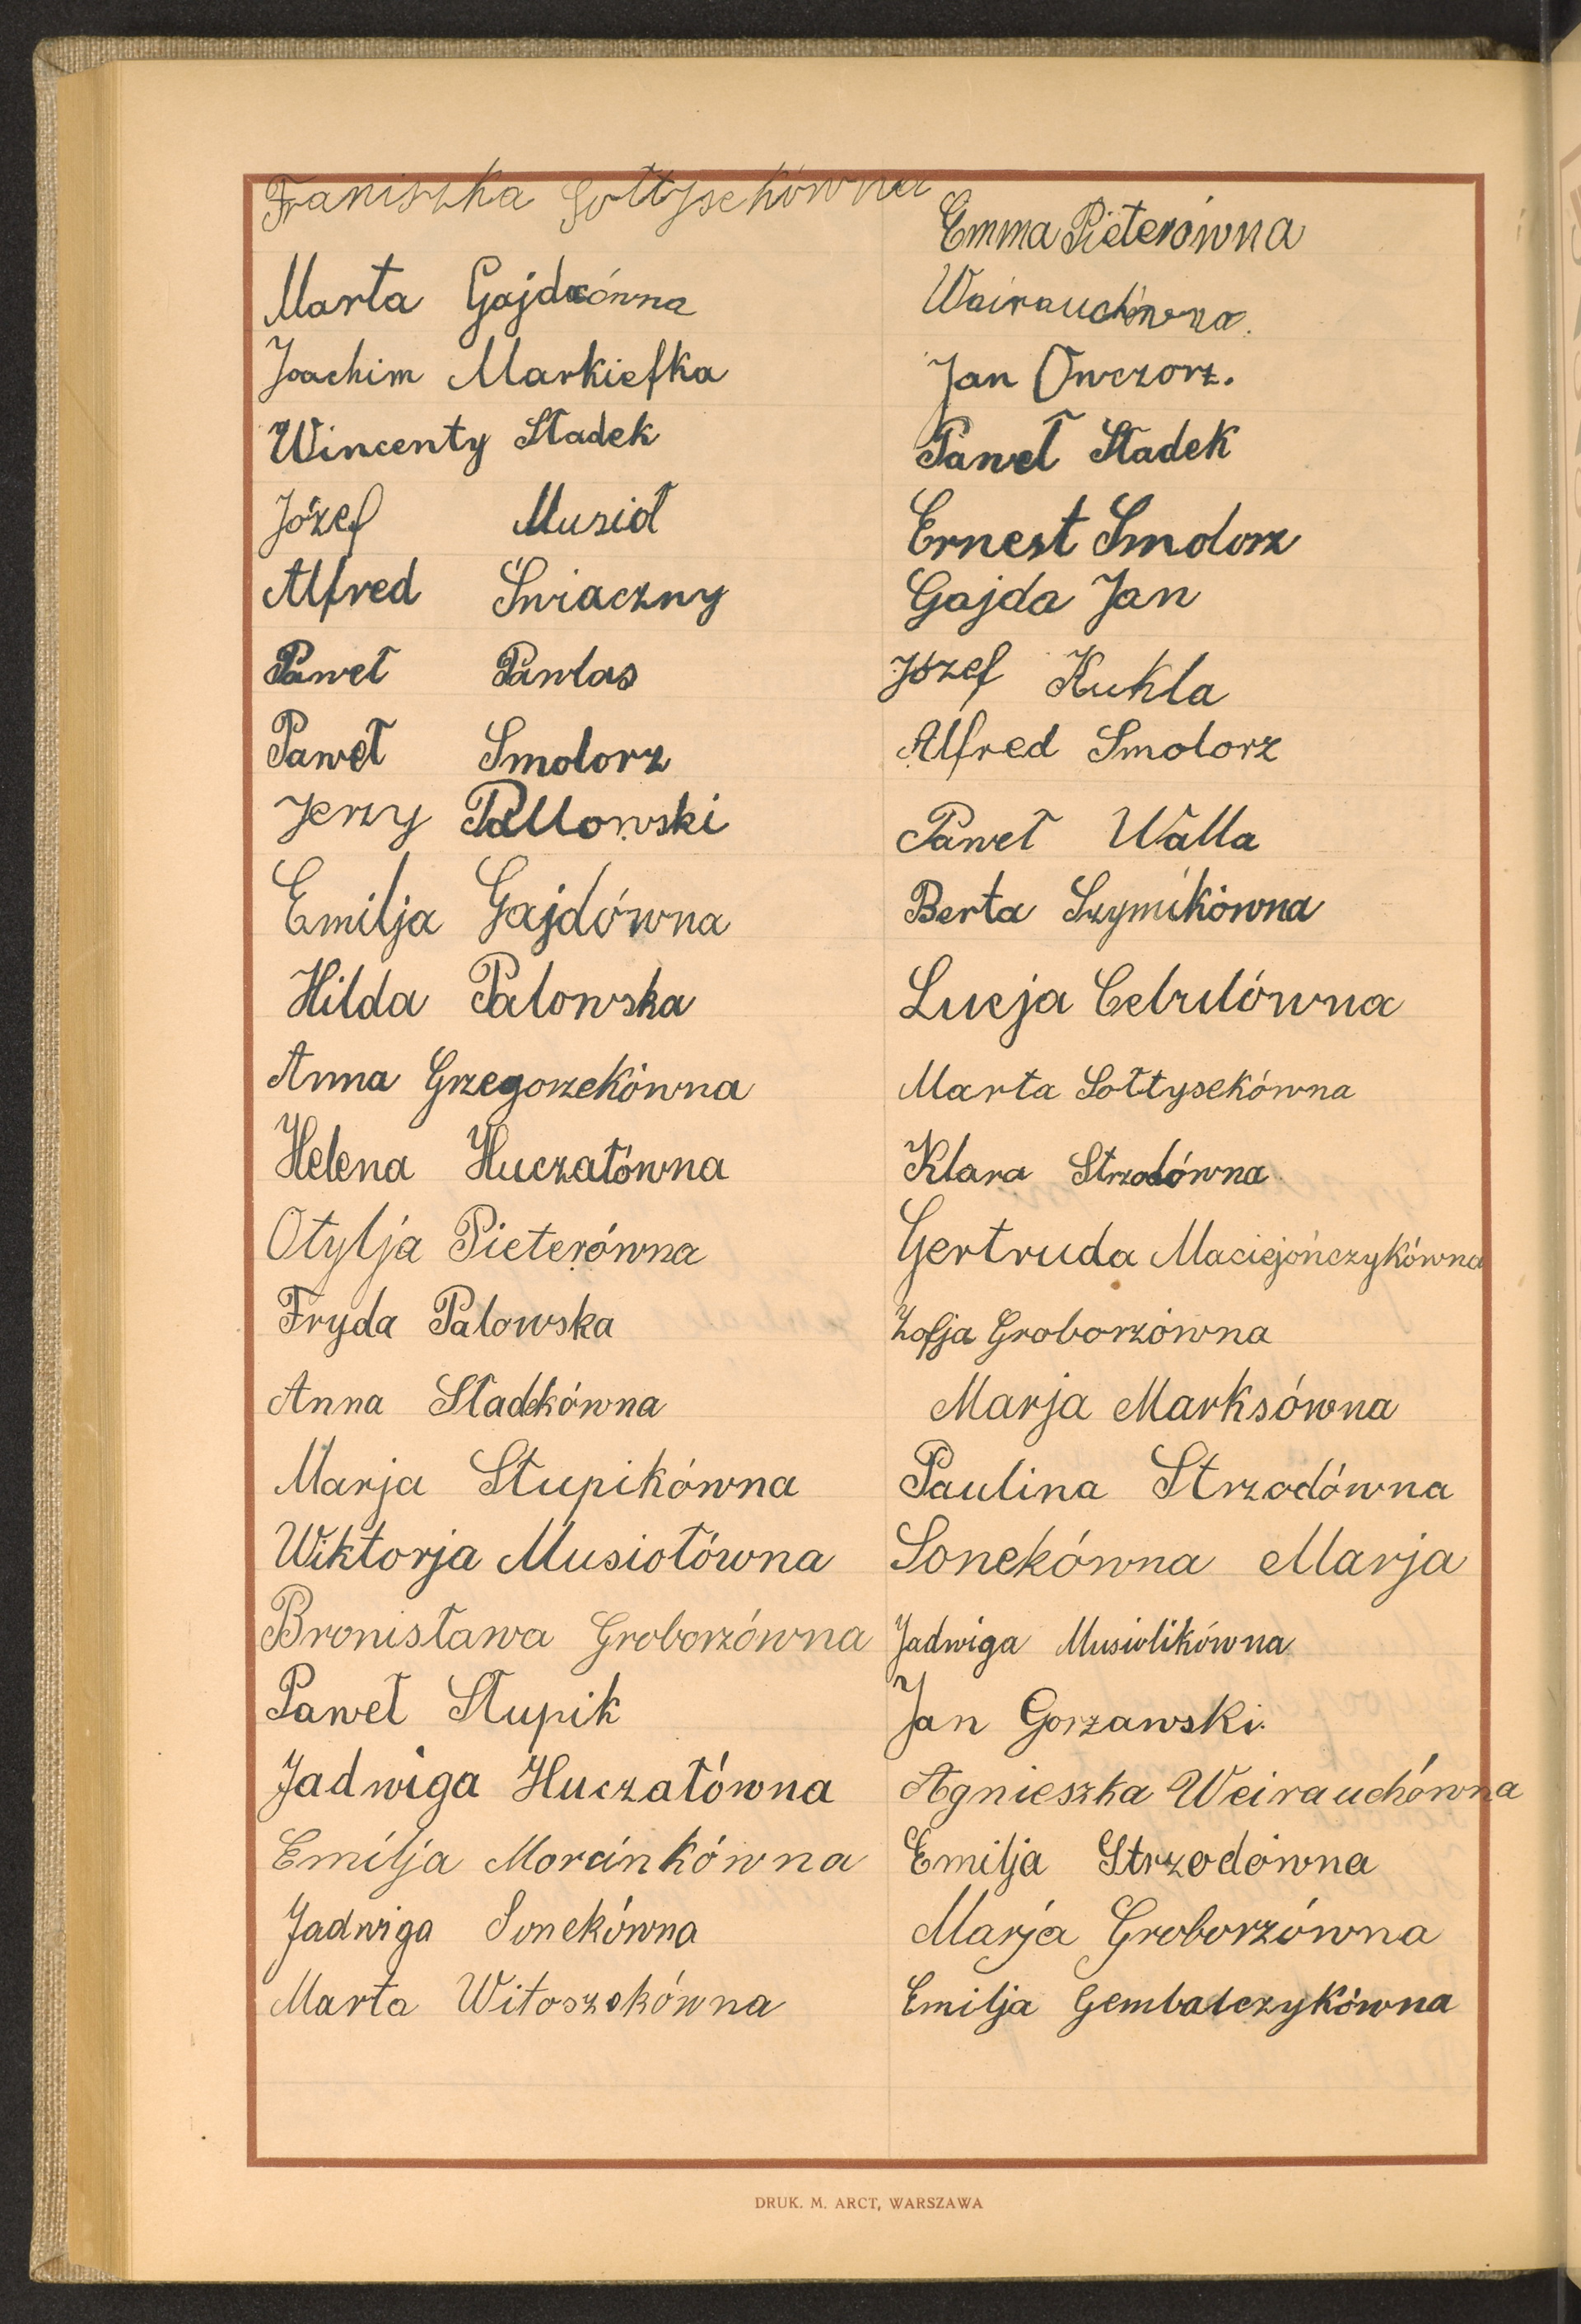 Franiszka Sołtysekówna
Marta Gajdzówna
Joachim Markiefka
Wincenty Sładek
Józef Musioł
Alfred Świaczny
Paweł Pawlas
Paweł Smolorz
Jerzy Pallowski
Emilja Gajdówna
Hilda Palowska
Anna Grzegorzekówna
Helena Huczałówna
Otylja Pieterówna
Fryda Palowska
Anna Sładkówna
Marja Słupikówna
Wiktorja Musiołówna
Bronisława Groborzówna
Paweł Słupik
Jadwiga Huczałówna
Emilja Morcinkówna
Jadwiga Sonekówna
Marta Witoszekówna
Emma Pieterówna
Wairauchówna.
Jan Owczorz.
Paweł Sładek
Ernest Smolorz
Gajda Jan
Józef Kukla
Alfred Smolorz
Paweł Walla
Berta Szymikówna
Łucja Cebulówna
Marta Sołtysekówna
Klara Strzodówna
Gertruda Maciejończykówna
Zofja Groborzówna
Marja Marksówna
Paulina Strzodówna
Sonekówna Marja
Jadwiga Musiolikówna
Jan Gorzawski
Agnieszka Weirauchówna
Emilja Strzodówna
Marja Groborzówna
Emilja Gembalczykówna
DRUK. M. ARCT, WARSZAWA